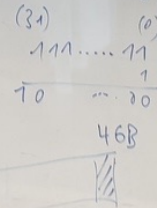 (31) (0)
111.....11
1
10 ... 00
46B